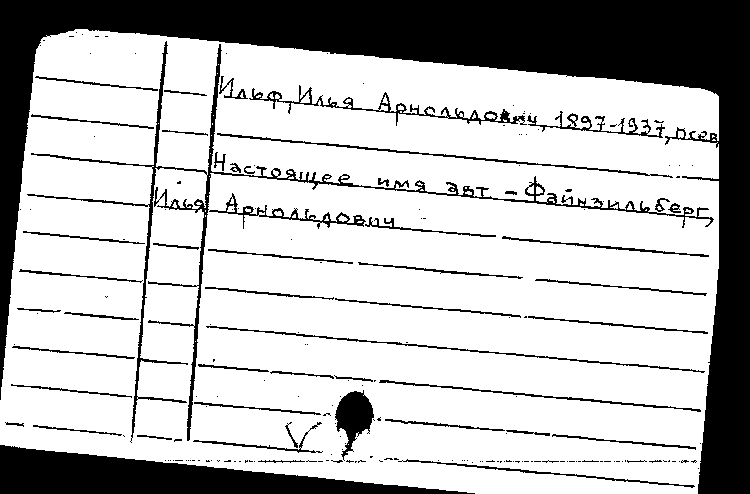 Ильф, Илья Арнольдович, 1897-1937, псев
Настоящее имя авт - Файнзильберг,
Илья Арнольдович